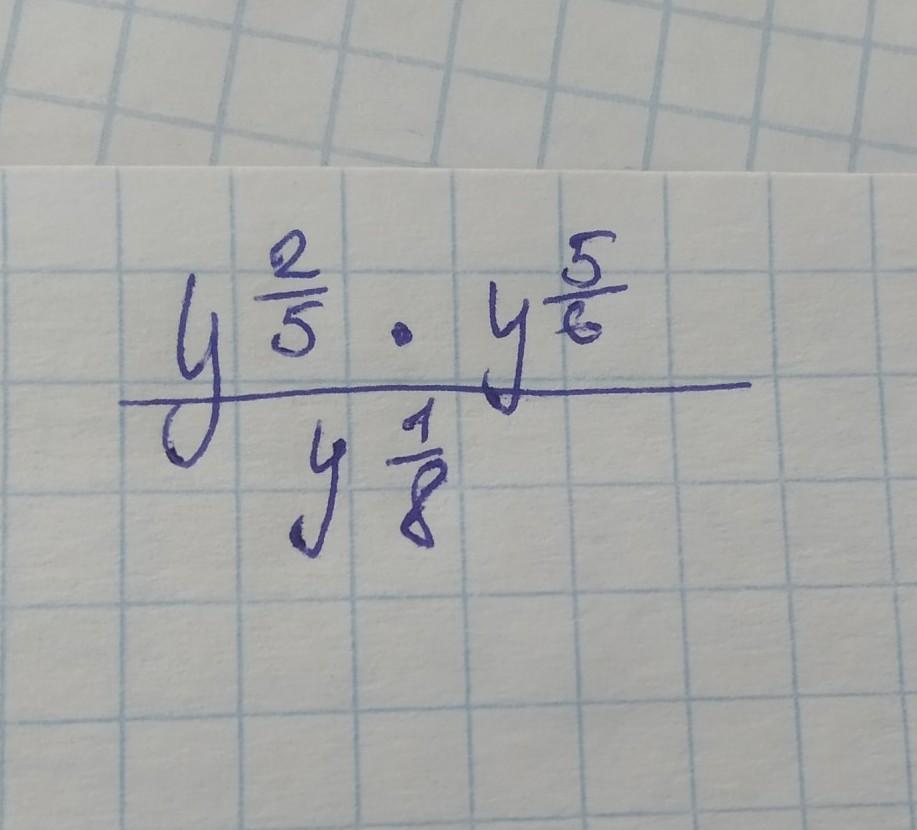 y^(2/5) · y^(5/6)
y^(1/8)